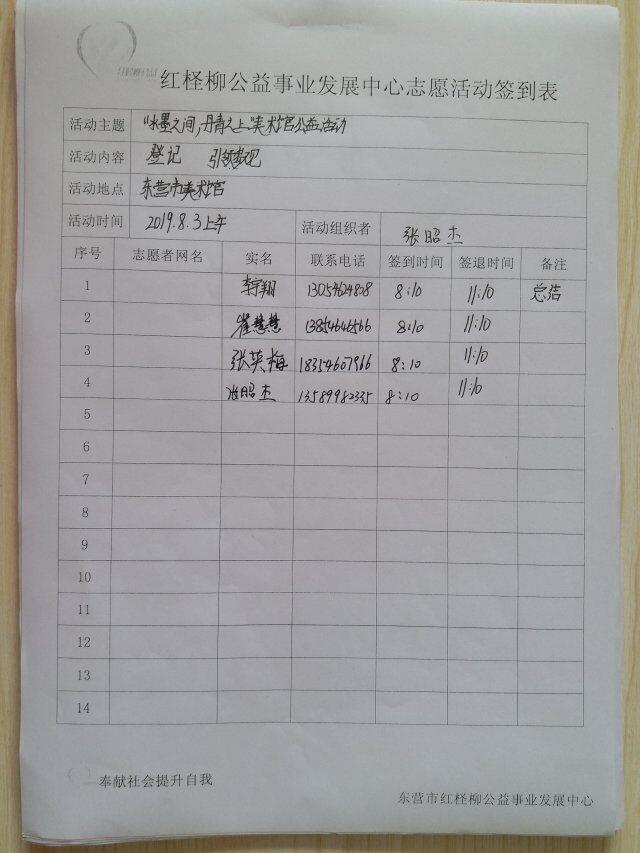 红柽柳公益事业发展中心志愿活动签到表
活动主题 "水墨之间,丹青之上"美术馆公益活动
活动内容 登记 引领参观
活动地点 东营市美术馆
活动时间 2019.8.3上午 活动组织者 张昭杰
序号 志愿者网名 实名 联系电话 签到时间 签退时间 备注
1 李宇翔 13054624808 8:10 11:10
2 崔慧慧 13854646566 8:10 11:10
3 张英梅 18354607966 8:10 11:10
4 张昭杰 13589982335 8:10 11:10
5
6
7
8
9
10
11
12
13
14
奉献社会提升自我
东营市红柽柳公益事业发展中心